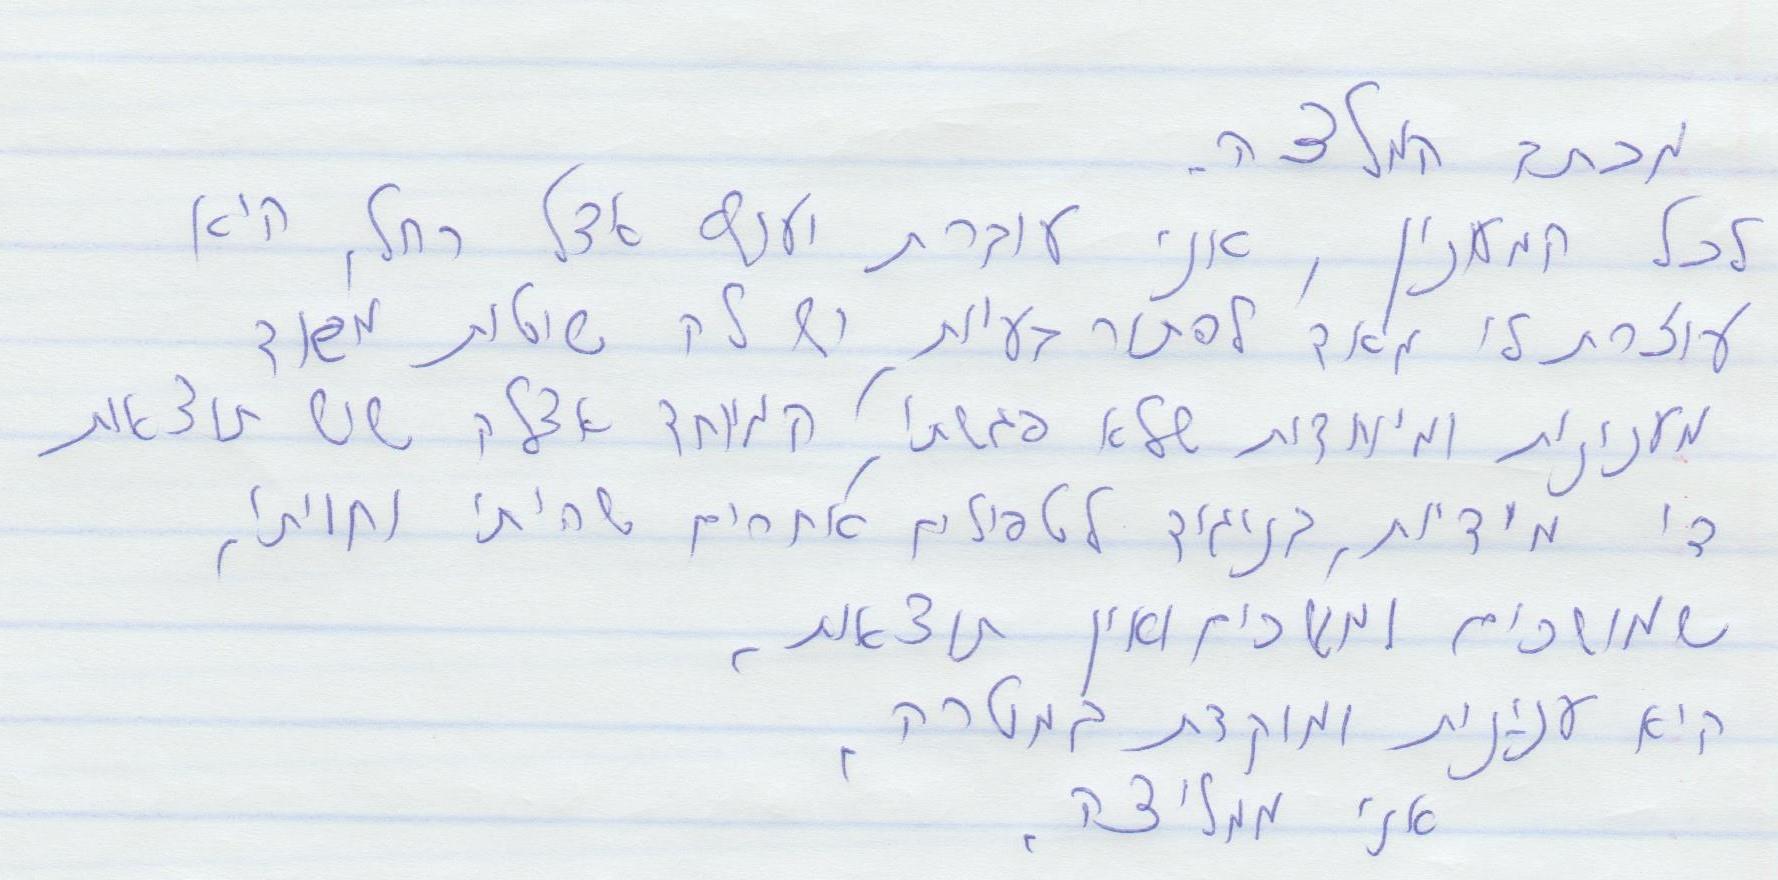 מכתב המלצה.
לכל המענין, אני עוברת אצל רחל, היא
עוזרת לי מאד לפתור בעיות, יש לה שיטות מאוד
מענינות ומיוחדות שלא פגשתי, המיוחד אצלה שיש תוצאות
די מידיות, בניגוד לטפולים אחרים שהיתי וחויתי,
שמושכים ומשכים ואין תוצאות.
היא ענינית ומוקדת במטרה.
אני ממליצה.